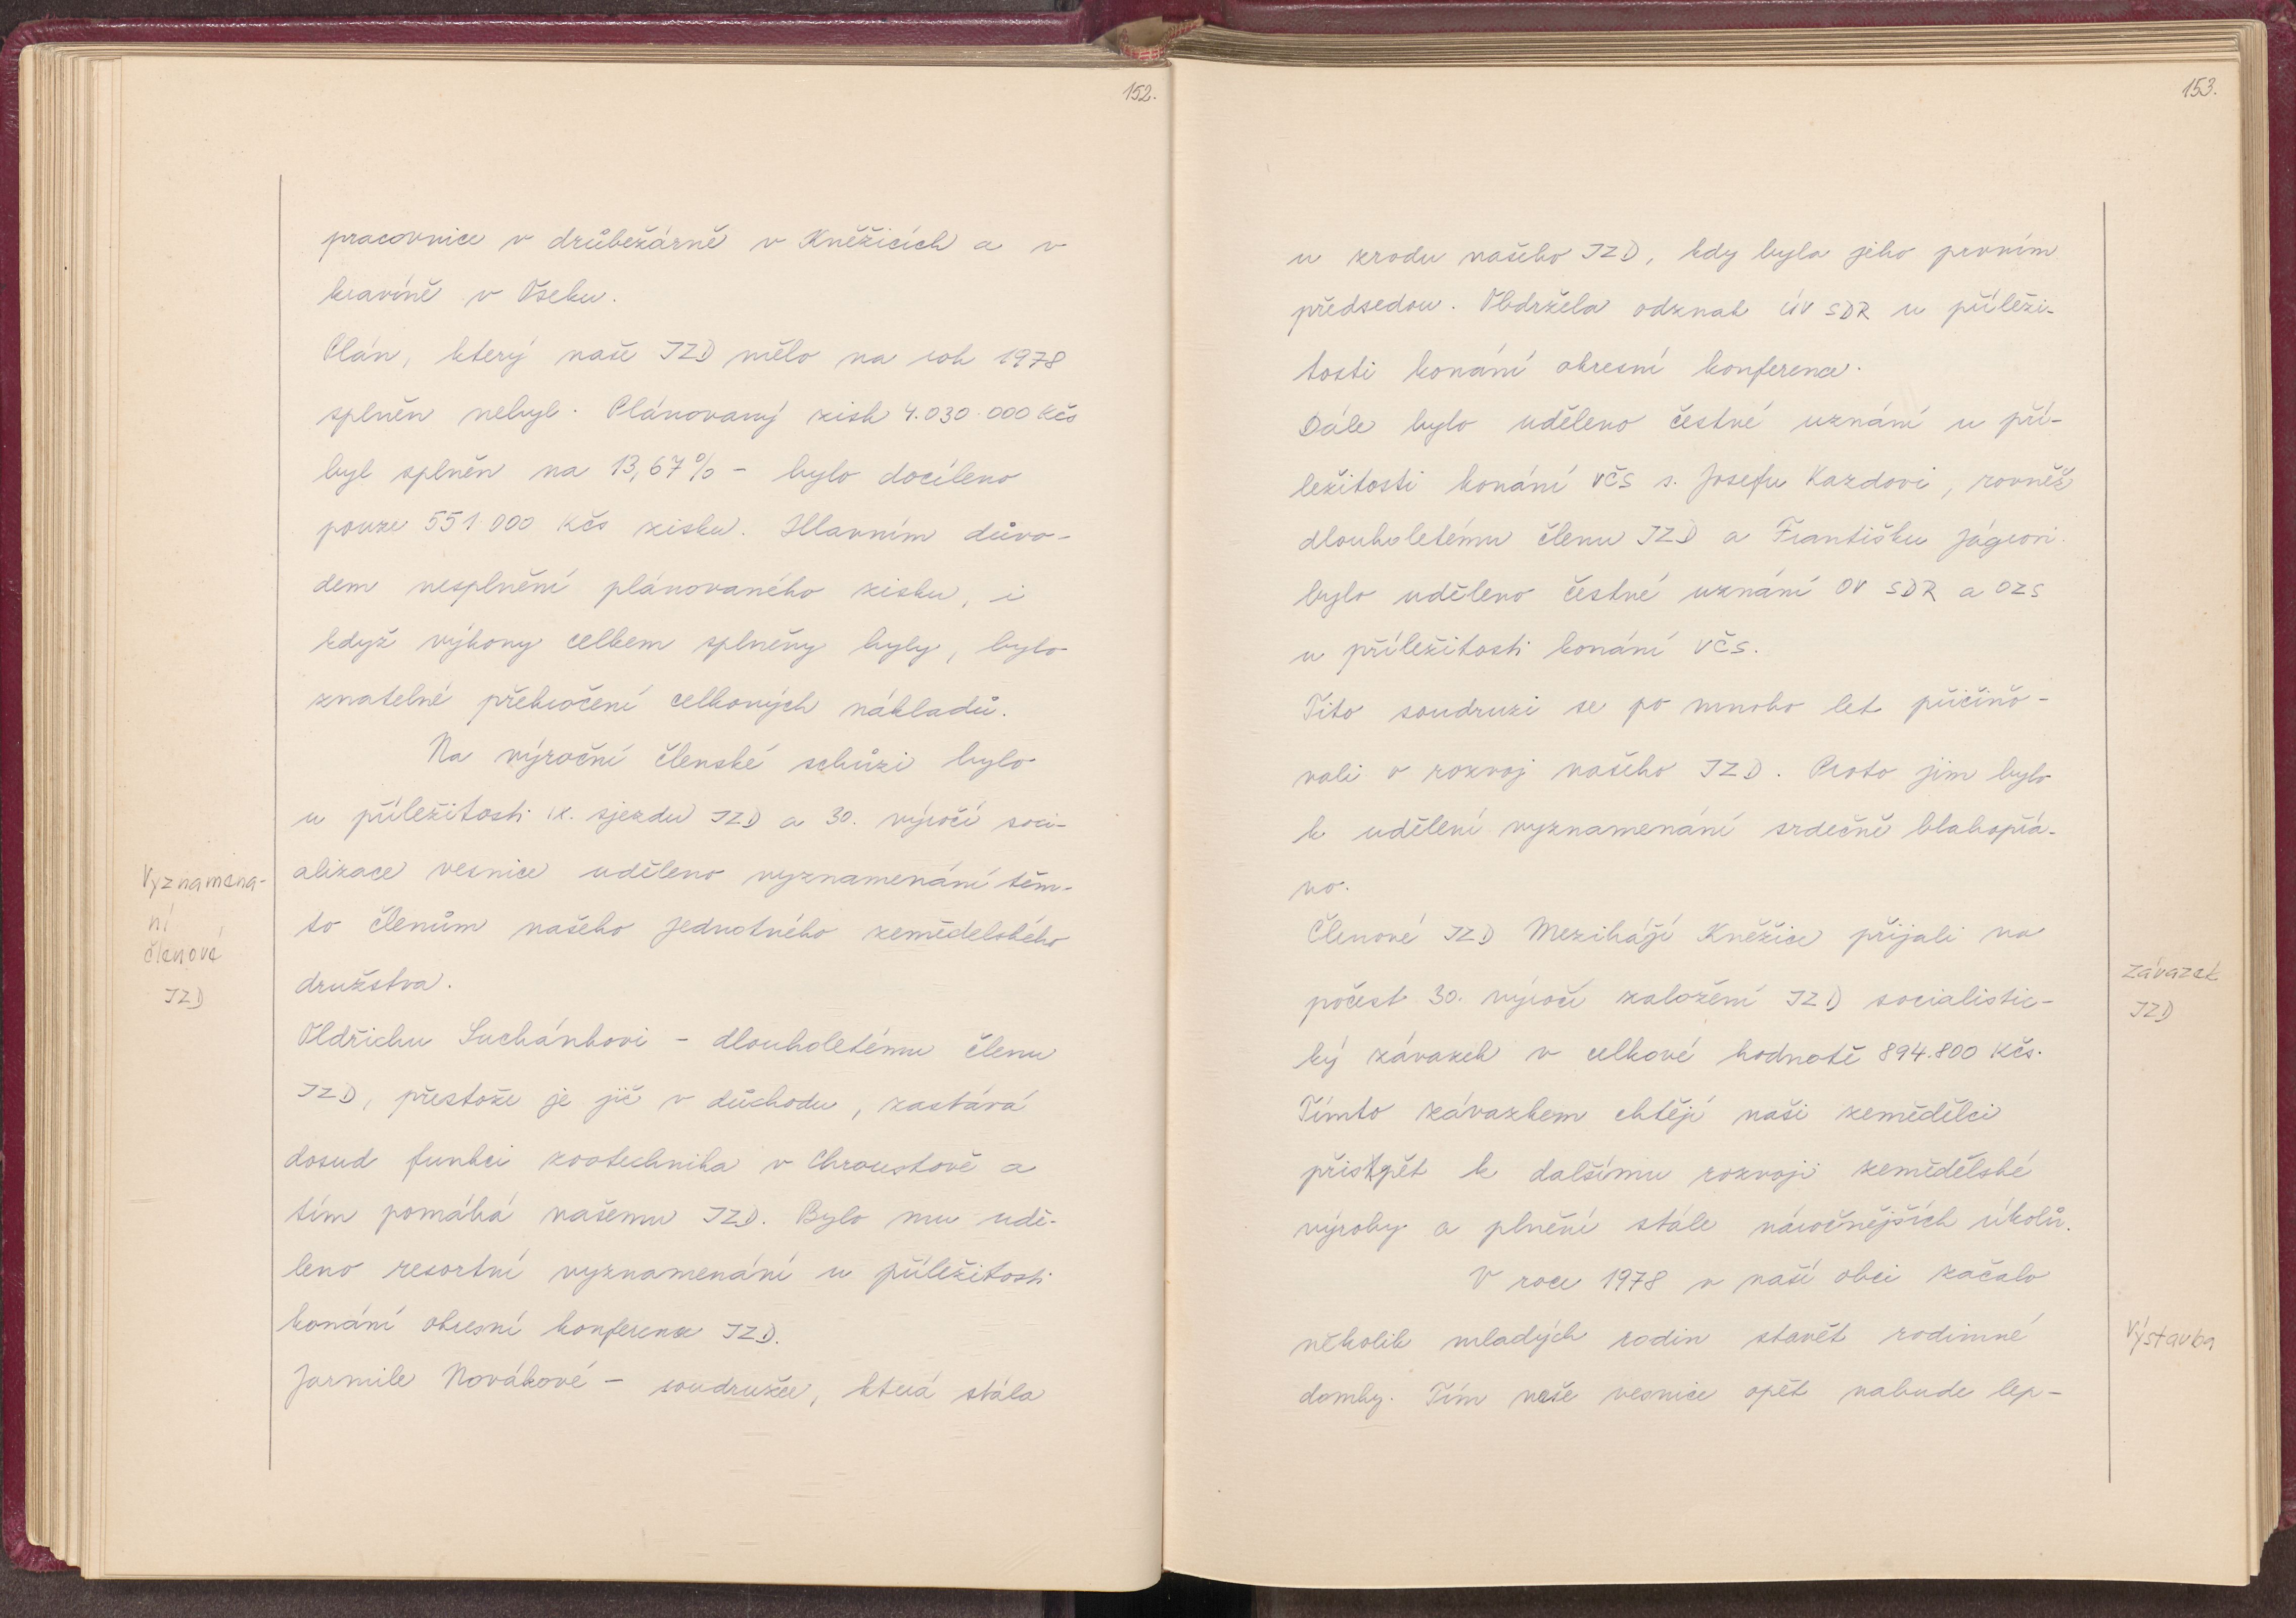 152.
pracovnice v drůbežárně v Kněžicích a v
kravíně v Oseku.
Plán, který naše JZD mělo na rok 1978
splněn nebyl. Plánovaný zisk 4.030.000 Kčs
byl splněn na 13,67% – bylo docíleno
pouze 551.000 Kčs zisku. Hlavním důvo-
dem nesplnění plánovaného zisku, i
když výkony celkem splněny byly, bylo
znatelné překročení celkových nákladů.
Na výroční členské schůzi bylo
u příležitosti IX. sjezdu JZD a 30. výročí soci-
alizace vesnice uděleno vyznamenání těm-
to členům našeho jednotného zemědelského
družstva.
Vyznamena-
ní
členové
JZD
Oldřichu Suchánkovi – dlouholetému členu
JZD, přestože je již v důchodu, zastává
dosud funkci zootechnika v Chroustově a
tím pomáhá našemu JZD. Bylo mu udě-
leno resortní vyznamenání u příležitosti
konání okresní konference JZD.
Jarmile Novákové – soudružce, která stála
153.
u zrodu našeho JZD, kdy byla jeho prvním
předsedou. Obdržela odznak ÚV SDR u příleži-
tosti konání okresní konference.
Dále bylo uděleno čestné uznání u pří-
ležitosti konání VČS s. Josefu Kazdovi, rovněž
dlouholetému členu JZD a Františku Jágrovi
bylo uděleno čestné uznání OV SDR a OZS
u příležitosti konání VČS.
Tito soudruzi se po mnoho let přičiňo-
vali o rozvoj našeho JZD. Proto jim bylo
k udělení vyznamenání srdečně blahopřá-
no.
Členové JZD Mezihájí Kněžice přijali na
počest 30. výročí založení JZD socialistic-
ký závazek v celkové hodnotě 894.800 Kčs.
Tímto závazkem chtějí naši zemědělci
přispět k dalšímu rozvoji zemědělské
výroby a plnění stále náročnějších úkolů.
závazek
JZD
V roce 1978 v naší obci začalo
několik mladých rodin stavět rodinné
domky. Tím naše vesnice opět nabude lep-
Výstavba